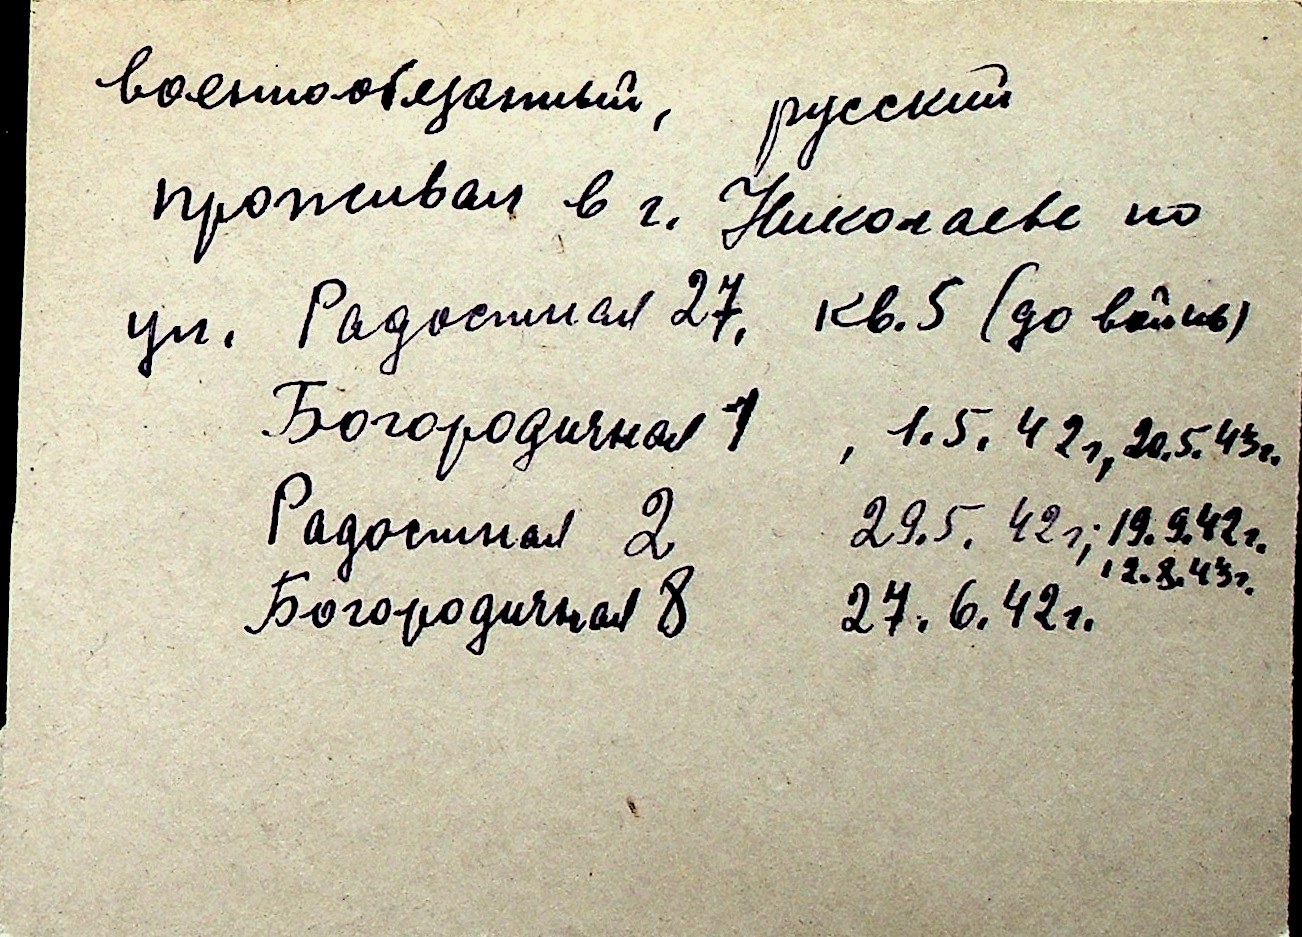 военнообязанный, русский
проживал в г. Николаеве по
ул. Радостная 27, кв. 5 (до войны)
Богородичная 1, 1.5.42г, 20.5.43г.
Радостная 2 29.5.42г; 19.9.42г.
12.8.43г.
Богородичная 8 27.6.42г.